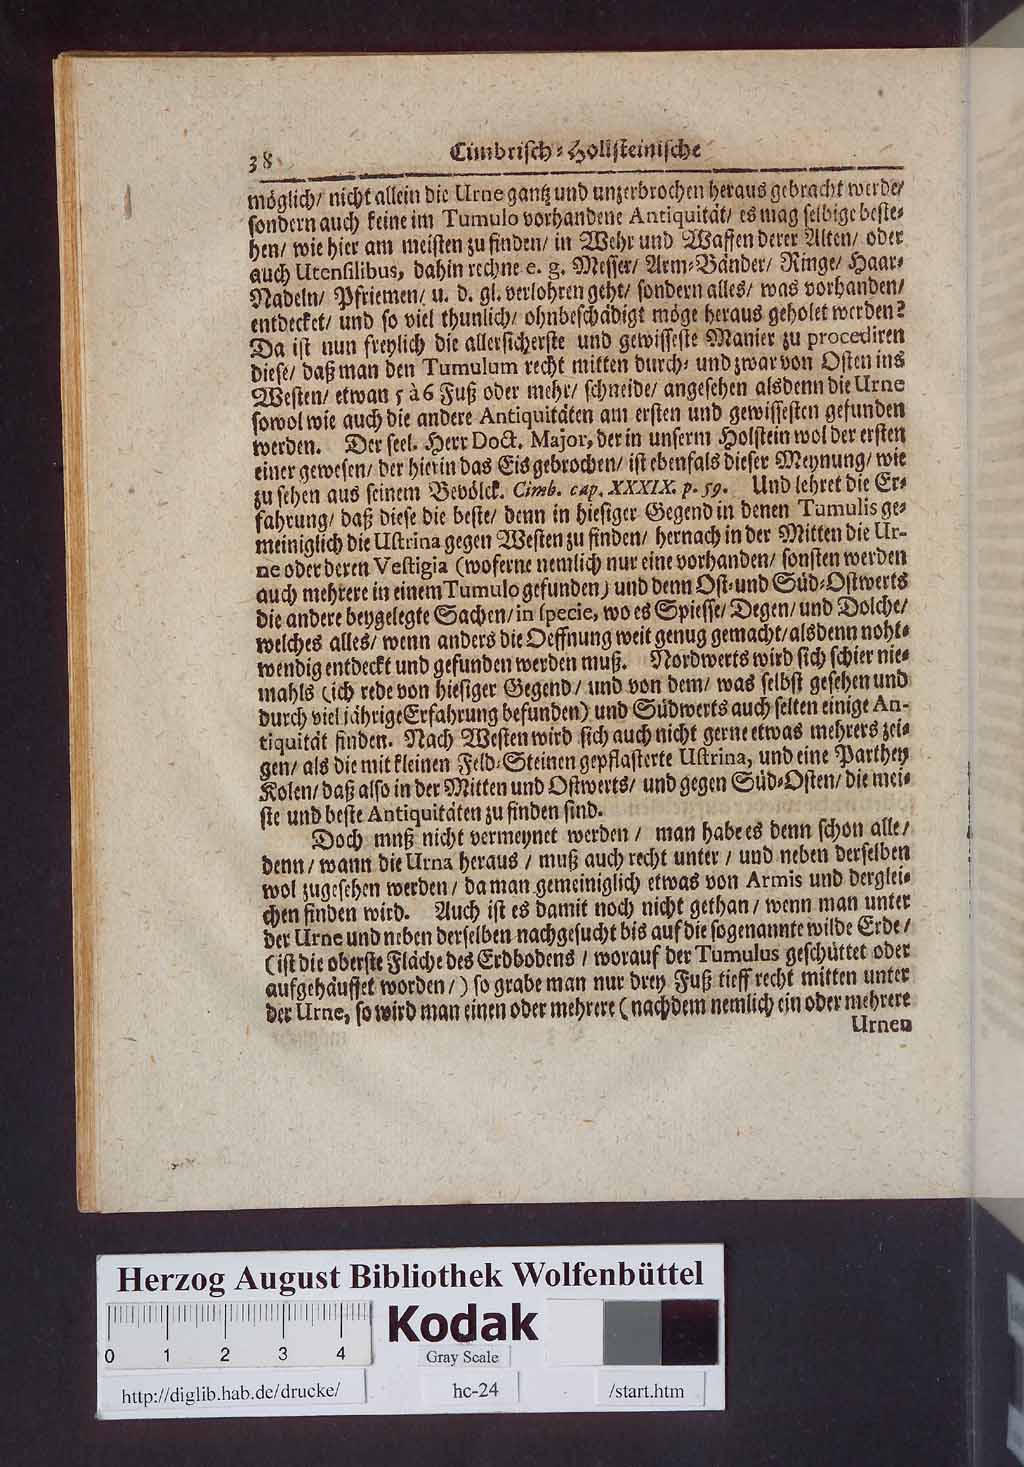 38 Cimbrisch-Hollsteinische
möglich/ nicht allein die Urne gantz und unzerbrochen heraus gebracht werde/
sondern auch keine im Tumulo vorhandene Antiquität/ es mag selbige beste-
hen/ wie hier am meisten zu finden/ in Wehr und Waffen derer Alten/ oder
auch Utensilibus, dahin rechne e. g. Messer/ Arm-Bänder/ Ringe/ Haar-
Nadeln/ Pfriemen/ u. d. gl. verlohren geht/ sondern alles/ was vorhanden/
entdecket/ und so viel thunlich/ ohnbeschädigt möge heraus geholet werden?
Da ist nun freylich die allersicherste und gewisseste Manier zu procediren
diese/ daß man den Tumulum recht mitten durch- und zwar von Osten ins
Westen/ etwan 5 à 6 Fuß oder mehr/ schneide/ angesehen alsdenn die Urne
sowol wie auch die andere Antiquitäten am ersten und gewissesten gefunden
werden. Der seel. Herr Doct. Major, der in unserm Holstein wol der ersten
einer gewesen/ der hierin das Eis gebrochen/ ist ebenfals dieser Meynung/ wie
zu sehen aus seinem Bevölck. Cimb. cap. XXXIX. p. 59. Und lehret die Er-
fahrung/ daß diese die beste/ denn in hiesiger Gegend in denen Tumulis ge-
meiniglich die Ustrina gegen Westen zu finden/ hernach in der Mitten die Ur-
ne oder deren Vestigia (woferne nemlich nur eine vorhanden/ sonsten werden
auch mehrere in einem Tumulo gefunden) und denn Ost- und Süd-Ostwerts
die andere beygelegte Sachen/ in specie, wo es Spiesse/ Degen/ und Dolche/
welches alles/ wenn anders die Oeffnung weit genug gemacht/ alsdenn noht-
wendig entdeckt und gefunden werden muß. Nordwerts wird sich schier nie-
mahls (ich rede von hiesiger Gegend/ und von dem/ was selbst gesehen und
durch viel jährige Erfahrung befunden) und Südwerts auch selten einige An-
tiquität finden. Nach Westen wird sich auch nicht gerne etwas mehrers zei-
gen/ als die mit kleinen Feld-Steinen gepflasterte Ustrina, und eine Parthey
Kolen/ daß also in der Mitten und Ostwerts/ und gegen Süd-Osten/ die mei-
ste und beste Antiquitäten zu finden sind.
Doch mnß nicht vermeynet werden/ man habe es denn schon alle/
denn/ wann die Urna heraus/ muß auch recht unter/ und neben derselben
wol zugesehen werden/ da man gemeiniglich etwas von Armis und derglei-
chen finden wird. Auch ist es damit noch nicht gethan/ wenn man unter
der Urne und neben derselben nachgesucht bis auf die sogenannte wilde Erde/
(ist die oberste Fläche des Erdbodens/ worauf der Tumulus geschüttet oder
aufgehäuffet worden/) so grabe man nur drey Fuß tieff recht mitten unter
der Urne, so wird man einen oder mehrere (nachdem nemlich ein oder mehrere
Urnen
Herzog August Bibliothek Wolfenbüttel
Kodak
0 1 2 3 4
Gray Scale
http://diglib.hab.de/drucke/ hc-24 /start.htm